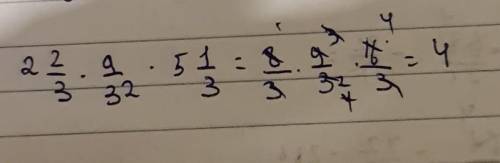 2 2/3 · 9/32 · 5 1/3 = 8/3 · 9/32 · 16/3 = 4